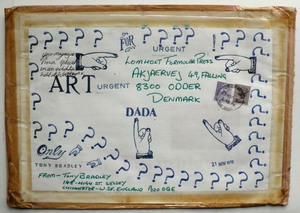 FOR
URGENT
LOMHOLT FORMULAR PRESS
AKJAERVEJ 49, FALLING
8300 ODDER
DENMARK
ART
URGENT
DADA
? ? ? ? ? ? ? ? ? ?
Only
TONY BRADLEY
21 NOV 1978
FROM - TONY BRADLEY
HIGH ST. SELSEY
CHICHESTER - W. SX. ENGLAND PO20 0QE